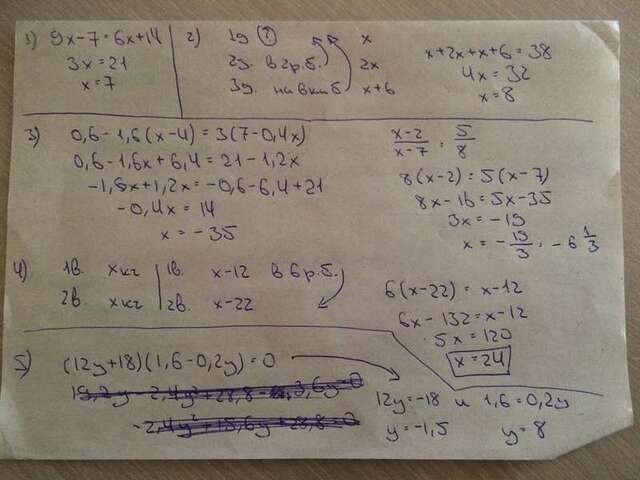 1) 9x-7=6x+14
3x=21
x=7
2) 1д (?) x
2д в 2 р. б. 2x
3д на 6 б x+6
x+2x+x+6=38
4x=32
x=8
3) 0,6-1,6(x-4)=3(7-0,4x)
0,6-1,6x+6,4=21-1,2x
-1,6x+1,2x=-0,6-6,4+21
-0,4x=14
x=-35
x-2/x-7=5/8
8(x-2)=5(x-7)
8x-16=5x-35
3x=-19
x=-19/3=-6 1/3
4) 1в. x кг | 1в. x-12 в 6 р. б.
2в. x кг | 2в. x-22
6(x-22)=x-12
6x-132=x-12
5x=120
x=24
5) (12y+18)(1,6-0,2y)=0
12y=-18 и 1,6=0,2y
y=-1,5 y=8